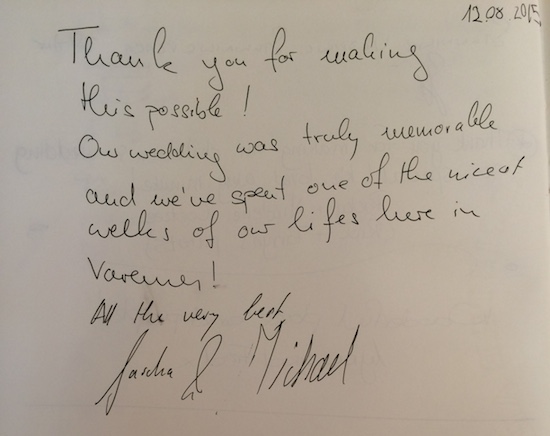 12.08.2015
Thank you for making
this possible!
Our wedding was truly memorable
and we've spent one of the nicest
weeks of our lifes here in
Varenna!
All the very best,
Sascha & Michael